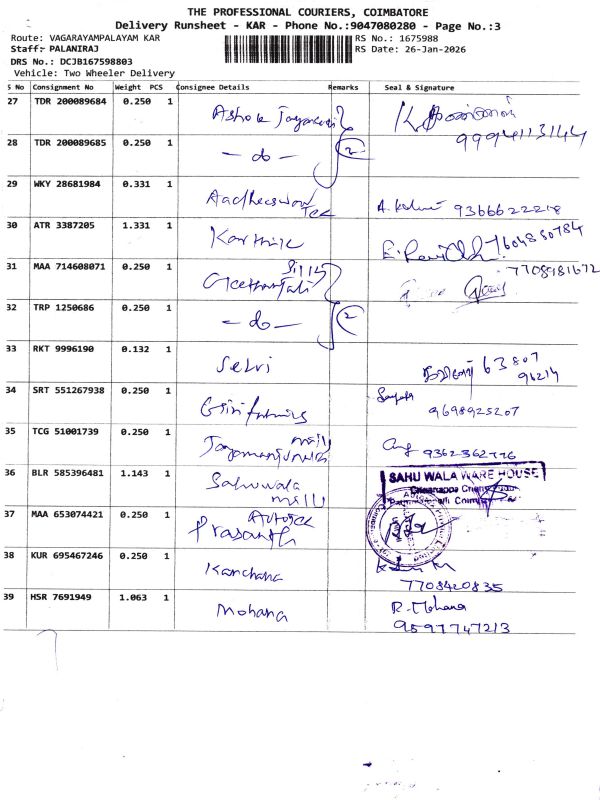 THE PROFESSIONAL COURIERS, COIMBATORE
Delivery Runsheet - KAR - Phone No.:9047080280 - Page No.:3
Route: VAGARAYAMPALAYAM KAR
RS No.: 1675988
Staff: PALANIRAJ
RS Date: 26-Jan-2026
DRS No.: DCJB167598803
Vehicle: Two Wheeler Delivery
S No Consignment No Weight PCS Consignee Details Remarks Seal & Signature
27 TDR 200089684 0.250 1 Ashok
28 TDR 200089685 0.250 1 - do - 2
29 WKY 28681984 0.331 1 Tex 9366622218
30 ATR 3387205 1.331 1 Karthik 7604880784
31 MAA 714608071 0.250 1 7708981672
32 TRP 1250686 0.250 1 - do - 2
33 RKT 9996190 0.132 1 Selvi 63807
96214
34 SRT 551267938 0.250 1 9698925207
35 TCG 51001739 0.250 1 mill 9362362776
36 BLR 585396481 1.143 1 Sahuwala
mill
SAHU WALA WARE HOUSE
37 MAA 653074421 0.250 1 Prasanth
38 KUR 695467246 0.250 1 Kanchana
7708420835
39 HSR 7691949 1.063 1 Mohana R. Mohana
9597747213